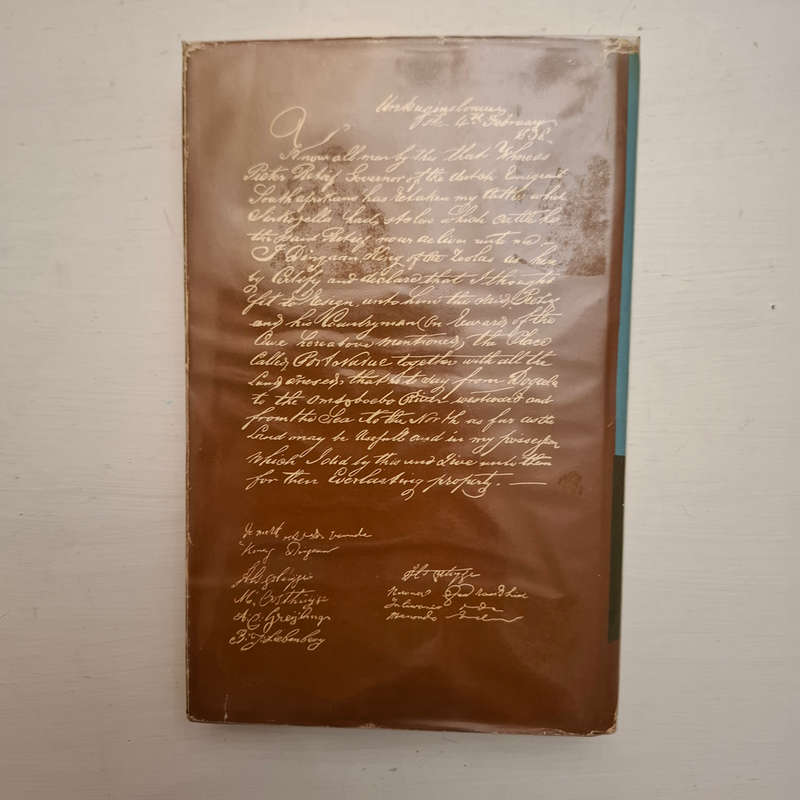 4th February
1838
Know all men by this that Whereas
Pieter Retief Governor of the dutch Emigrant
South afrikans has Retaken my Cattle which
Sinkonyella had stolen which Cattle he
the said Retief now deliver unto me
I Dingaan King of the Zoolas do here
by Certify and declare that I thought
fit to Resign unto him the said Retief
and his Countryman (in Reward of the
Case hereabove mentioned) the Place
Called Port Natal together with all the
Land annexed that is to say from Dogela
to the Omsoboebo River westward and
from the Sea to the North as far as the
Land may be Usefull and in my possession
Which I did by this and Give unto them
for their Everlasting property. —
M. Oosthuyze
A. C. Greyling
B. J. Liebenberg